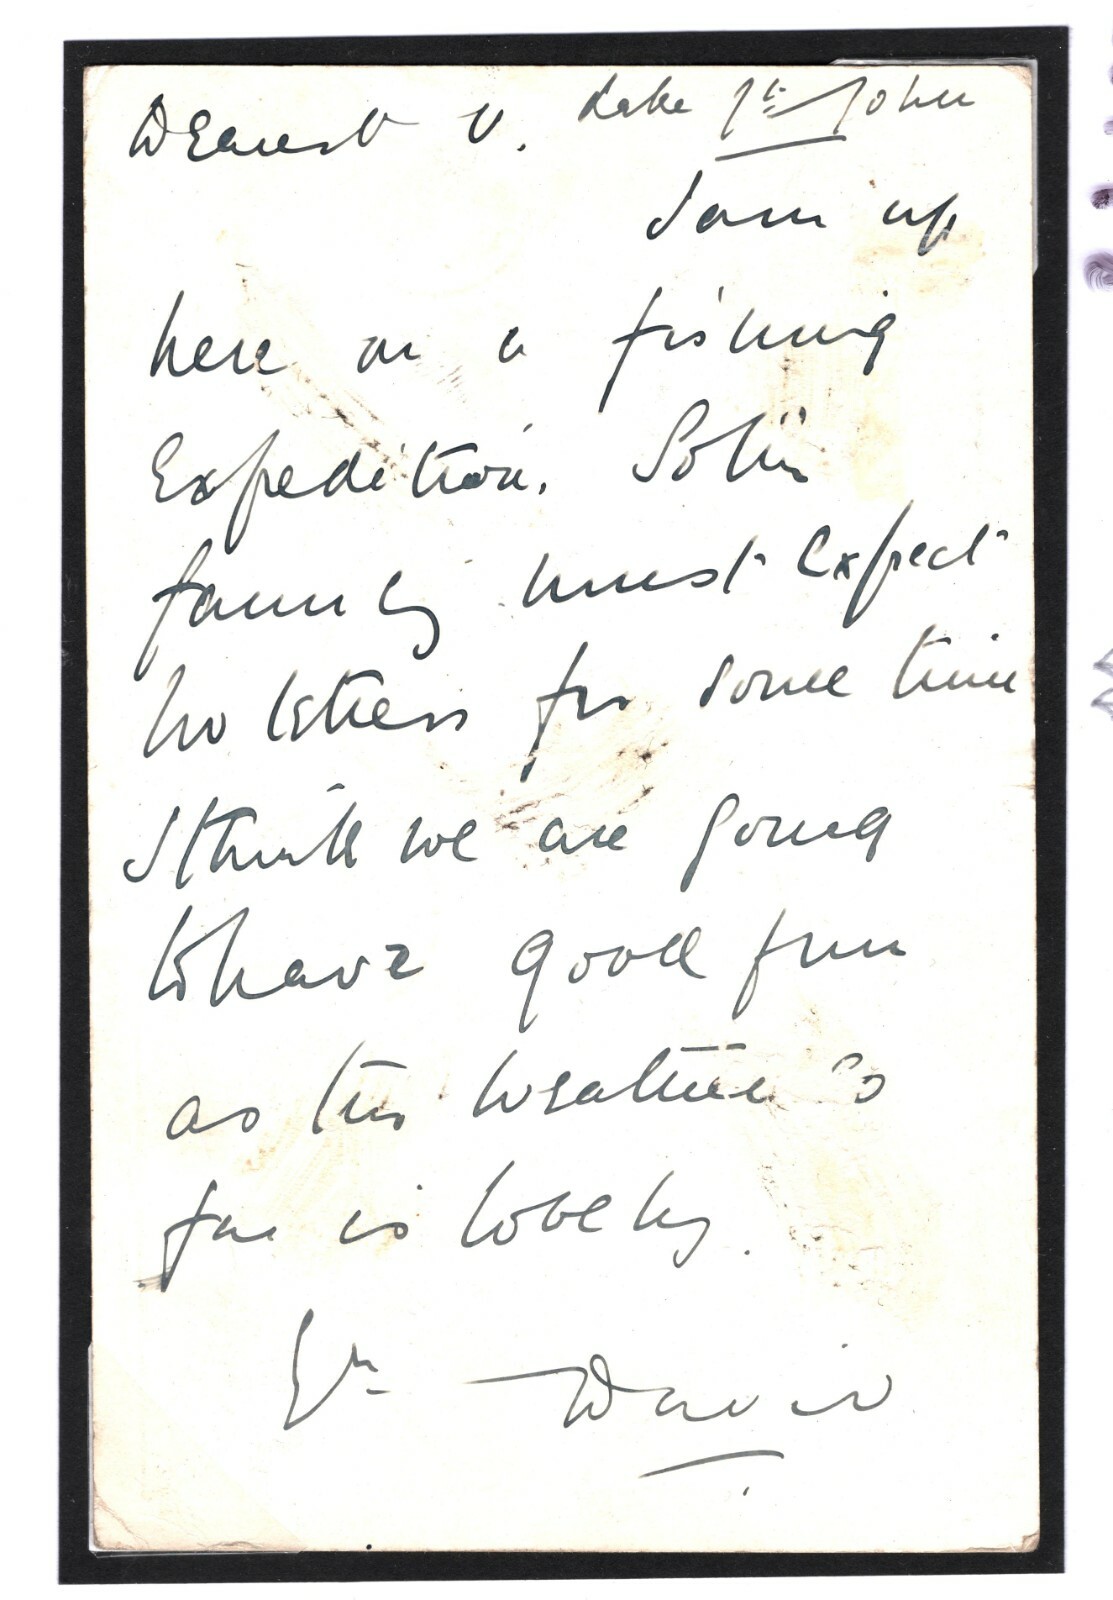 Dearest V. Lake St. John
I am up
here on a fishing
Expedition. So the
family must expect
no letters for some time
I think we are going
to have good fun
as the weather so
far is lovely.
Yr David